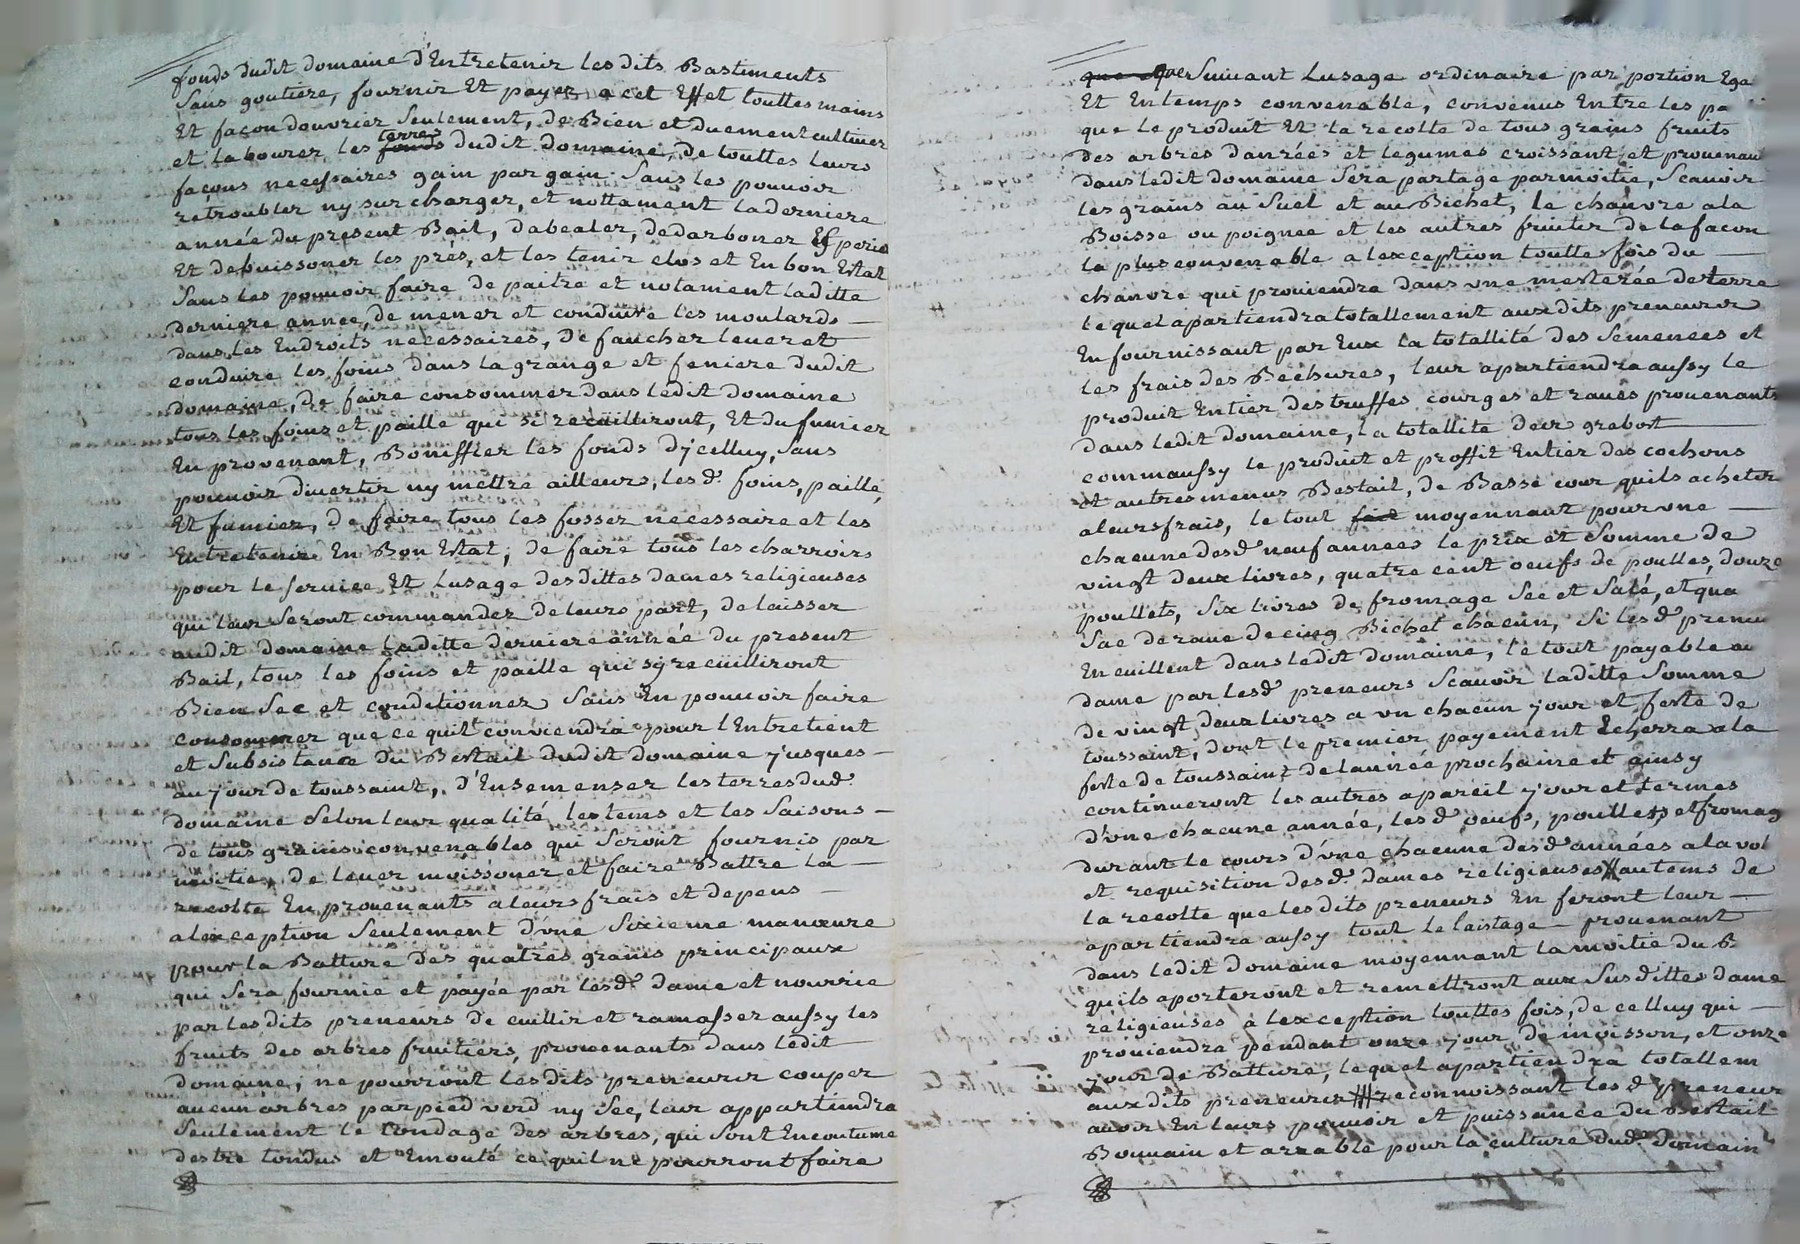 fonds dudit domaine d'Entretenir lesdits Bastiments
Sans goutiere, fournir Et payer a cet Effet touttes mains
Et façon douvrier Seulement, de Bien et duement cultiver
et labourer les terres dudit domaine, de touttes leurs
façons necessaires gain par gain. Sans les pouvoir
retroubler ny surcharger, et nottament la derniere
année du present Bail, dabealer, dedarboner
Et debuissoner les prés, et les tenir clos et En bon Estat
Sans les pouvoir faire de paitre et notament laditte
derniere année, de mener et conduire les moulards —
dans les Endroits necessaires, de faucher lever et
conduire les foins dans la grange et feniere dudit
domaine, de faire consommer dans ledit domaine
tous les foins et paille qui si recuilliront, Et du fumier
En provenant, Boniffier les fonds dycelluy, Sans
pouvoir divertir ny mettre ailleurs, lesd. foins, paille,
Et fumier, de faire tous les fossez necessaire et les
Entretenir En Bon Estat, de faire tous les charroirs
pour le service Et Lusage desdittes dames religieuses
qui leur Seront commandez de leurs part, de laisser
audit domaine Laditte derniere année du present
Bail, tous les foins et paille qui sy recuilliront
Bien Sec et conditionnez Sans En pouvoir faire
consommer que ce quil conviendra pour l'Entretient
et Subsistance du Bestail dudit domaine jusques —
au jour de toussaint, d'Ensemenser les terres dud.
domaine Selon leur qualité, les tems et les Saisons —
de tous grains convenables qui Seront fournis par
moitie, de lever moissoner et faire Battre la —
recolte En provenants a leurs frais et depens —
a lexception Seulement d'une Sixieme manœure
pour la Batture des quatres grains principaux
qui Sera fournie et payée par lesd. dame et nourrie
par lesdits preneurs de cuillir et ramasser aussy les
fruits des arbres fruitiers, provenants dans ledit —
domaine, ne pourront lesdits preneurir couper
aucun arbres par pied verd ny Sec, leur appartiendra
Seulement le tondage des arbres, qui Sont En coutume
destre tondus et Emouté ce quil ne pourront faire
que Suivant Lusage ordinaire par portion Ega
Et En temps convenable, convenus Entre les pa
que le produit Et la recolte de tous grains fruits
des arbres danrées et legumes croissant et provenan
dans ledit domaine Sera partage par moitie, Scavoir
les grains au Suel et au Bichet, le chanvre a la
Boisse ou poignee et les autres fruiter de la facon
la plus convenable a lexception toutte fois du —
chanvre qui proviendra dans une mesterée de terre
lequel apartiendra totallement auxdits preneurir
En fournissant par Eux la totallité des Semences et
les frais des Bechures, leur apartiendra aussy le
produit Entier des truffes courges et raves provenants
dans ledit domaine, la totallité grabost —
comm aussy le produit et proffit Entier des cochons
et autres menus Bestail, de Basse cour quils acheter
a leurs frais, le tout moyennant pour une —
chacune desd. neuf annees le prix et Somme de
vingt deux livres, quatre cent oeufs de poulles, douze
poullets, Six livres de fromage Sec et Salé, et qua
Sac de rave de cinq Bichet chacun, Si lesd. preneu
En cuillent dans ledit domaine, le tout payable au
dame par lesd. preneurs Scavoir laditte Somme
de vingt deux livres a un chacun jour et feste de
toussaint, dont le premier payement Echerra a la
feste de toussaint de lannée prochaine et ainsy
continueront les autres a pareil jour et termes
d'une chacune année, lesd. oeufs, poullets et fromag
durant le cours d'une chacune desd. années a la vol
et requisition desd. dames religieuses au tems de
la recolte que lesdits preneurs En feront leur —
apartiendra aussy tout le laistage provenant
dans ledit domaine moyennant la moitie du B
quils aporteront et remettront aux Susdittes dame
réligieuses a lexception touttes fois, de celluy qui —
proviendra pendant onze jour de moisson, et onze
jour de Batture, lequel apartiendra totallem
auxdits preneurir reconnoissant les d. preneur
avoir En leurs pouvoir et puissance du Bestail
Bouvain et arrable pour la culture dud. domain